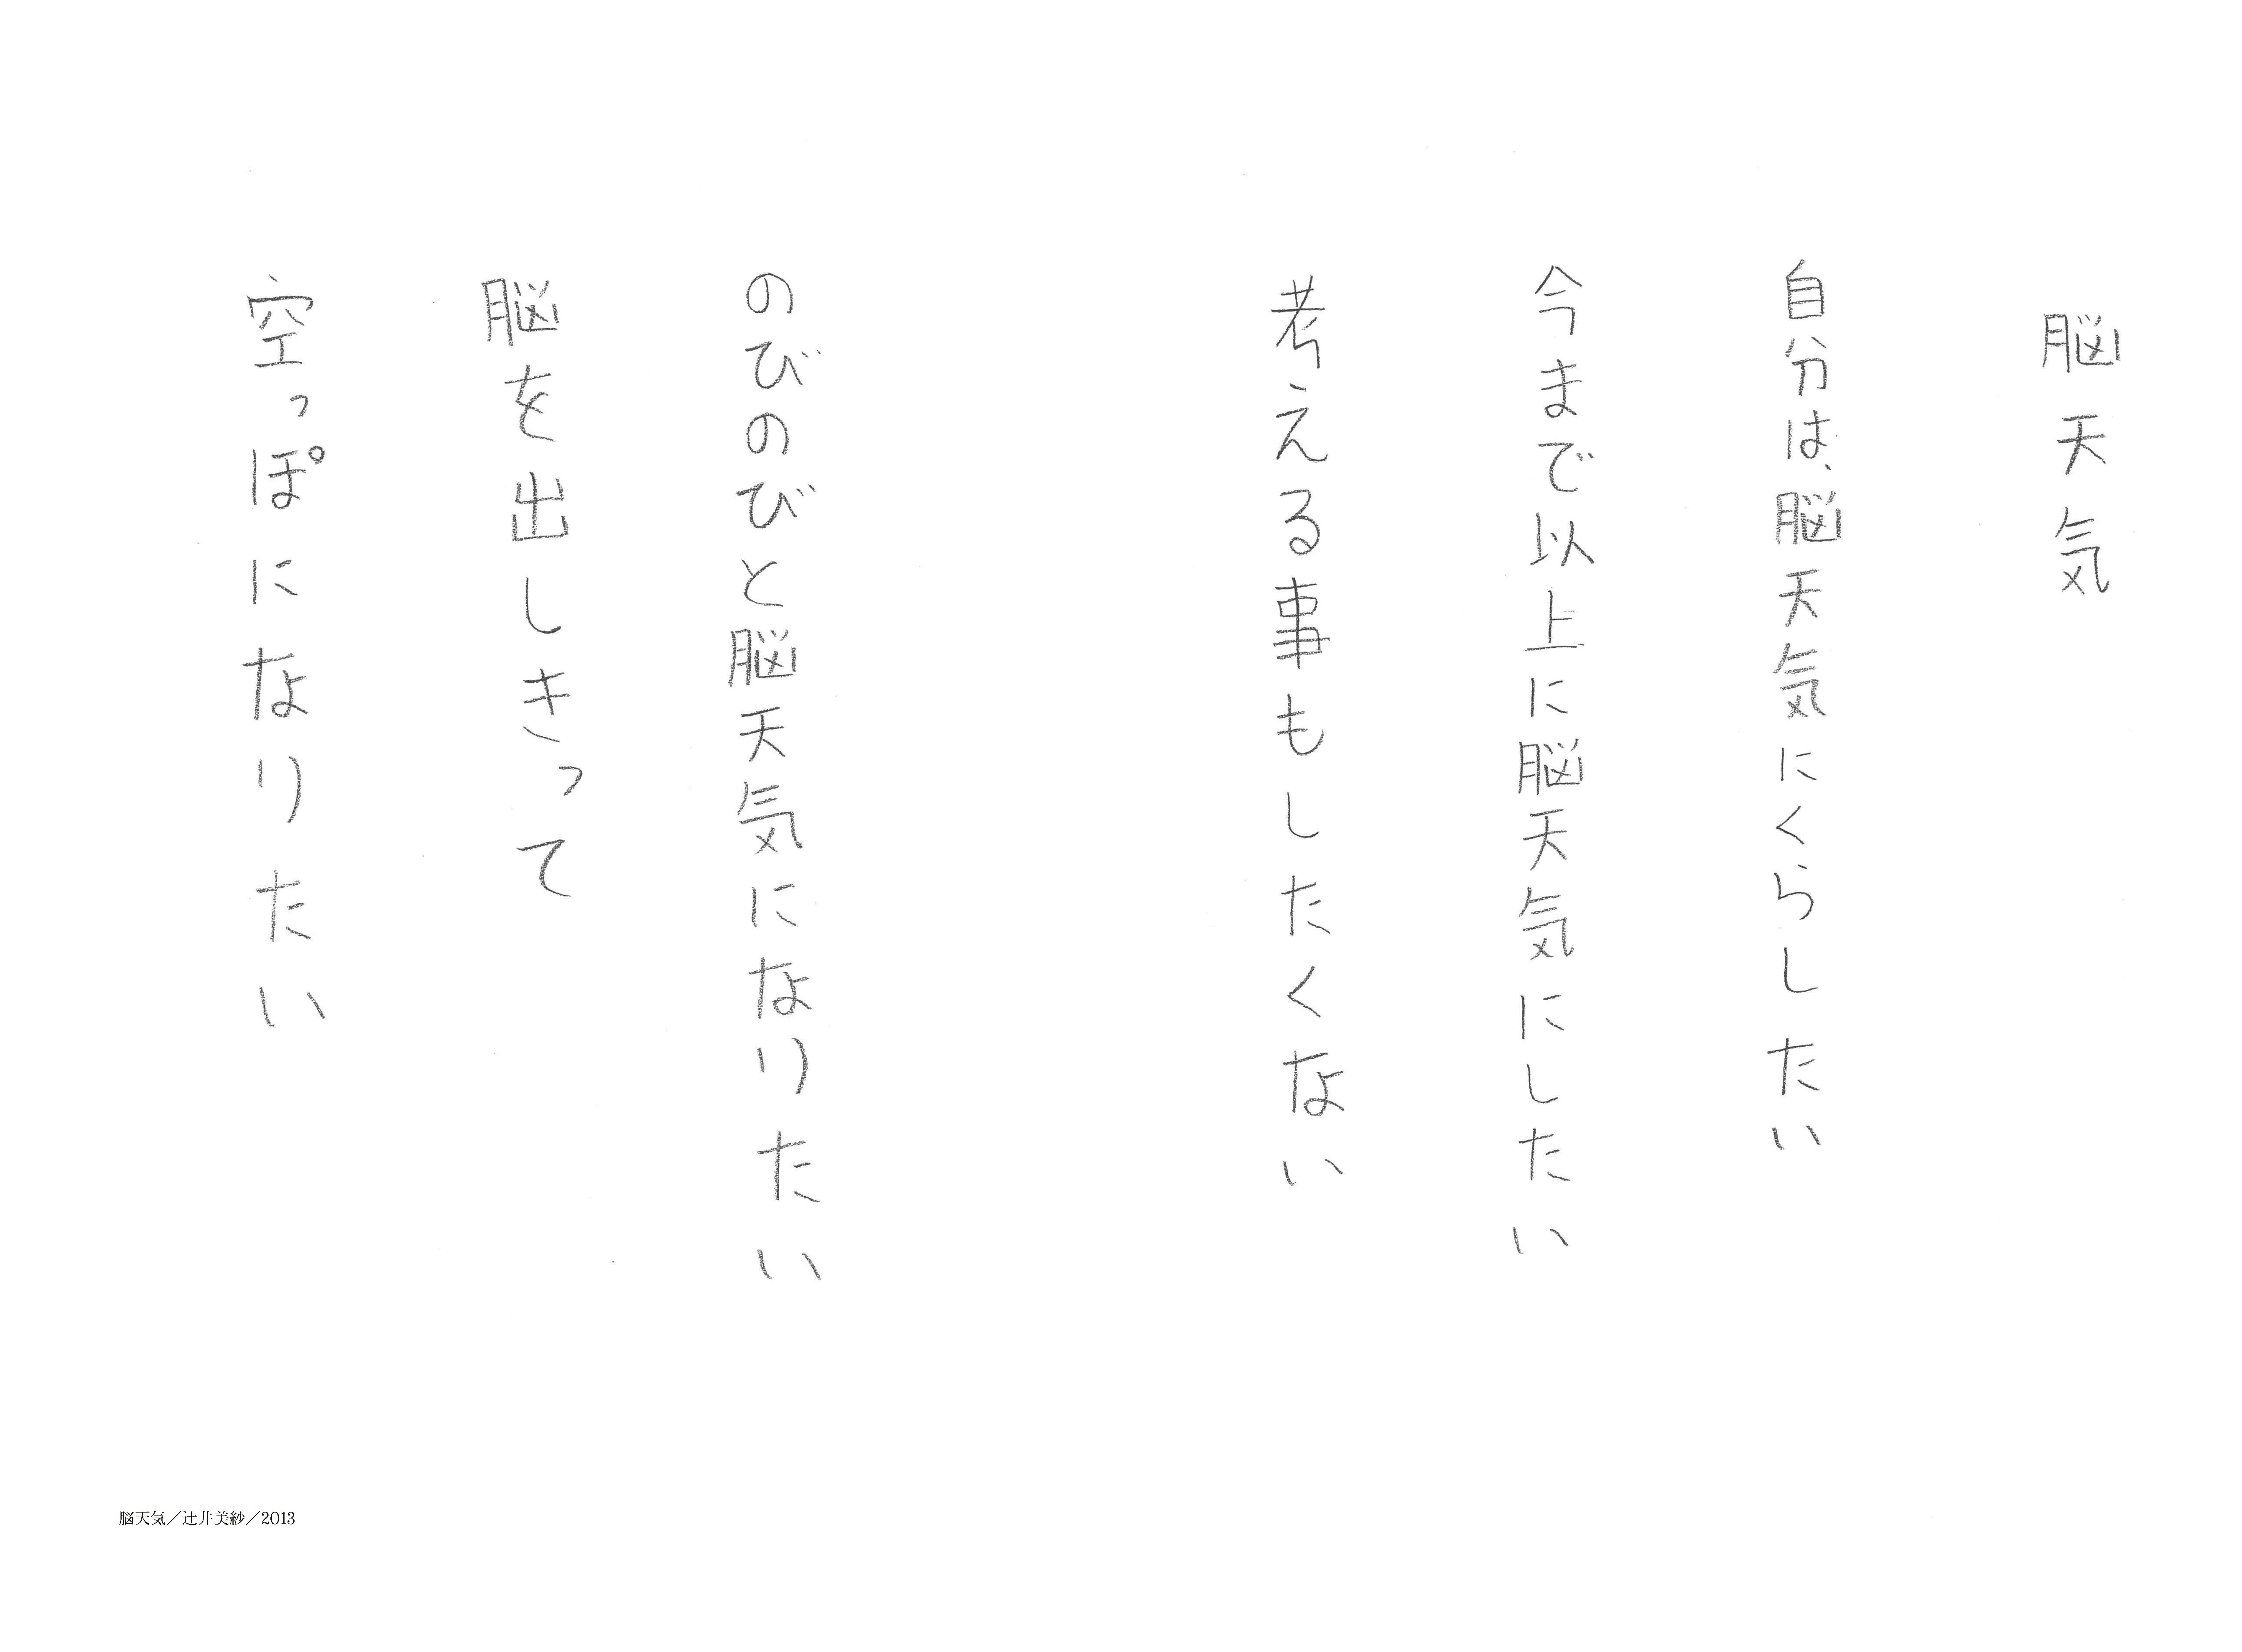 脳天気
自分は、脳天気にくらしたい
今まで以上に脳天気にしたい
考える事もしたくない
のびのびと脳天気になりたい
脳を出しきって
空っぽになりたい
脳天気／辻井美紗／2013